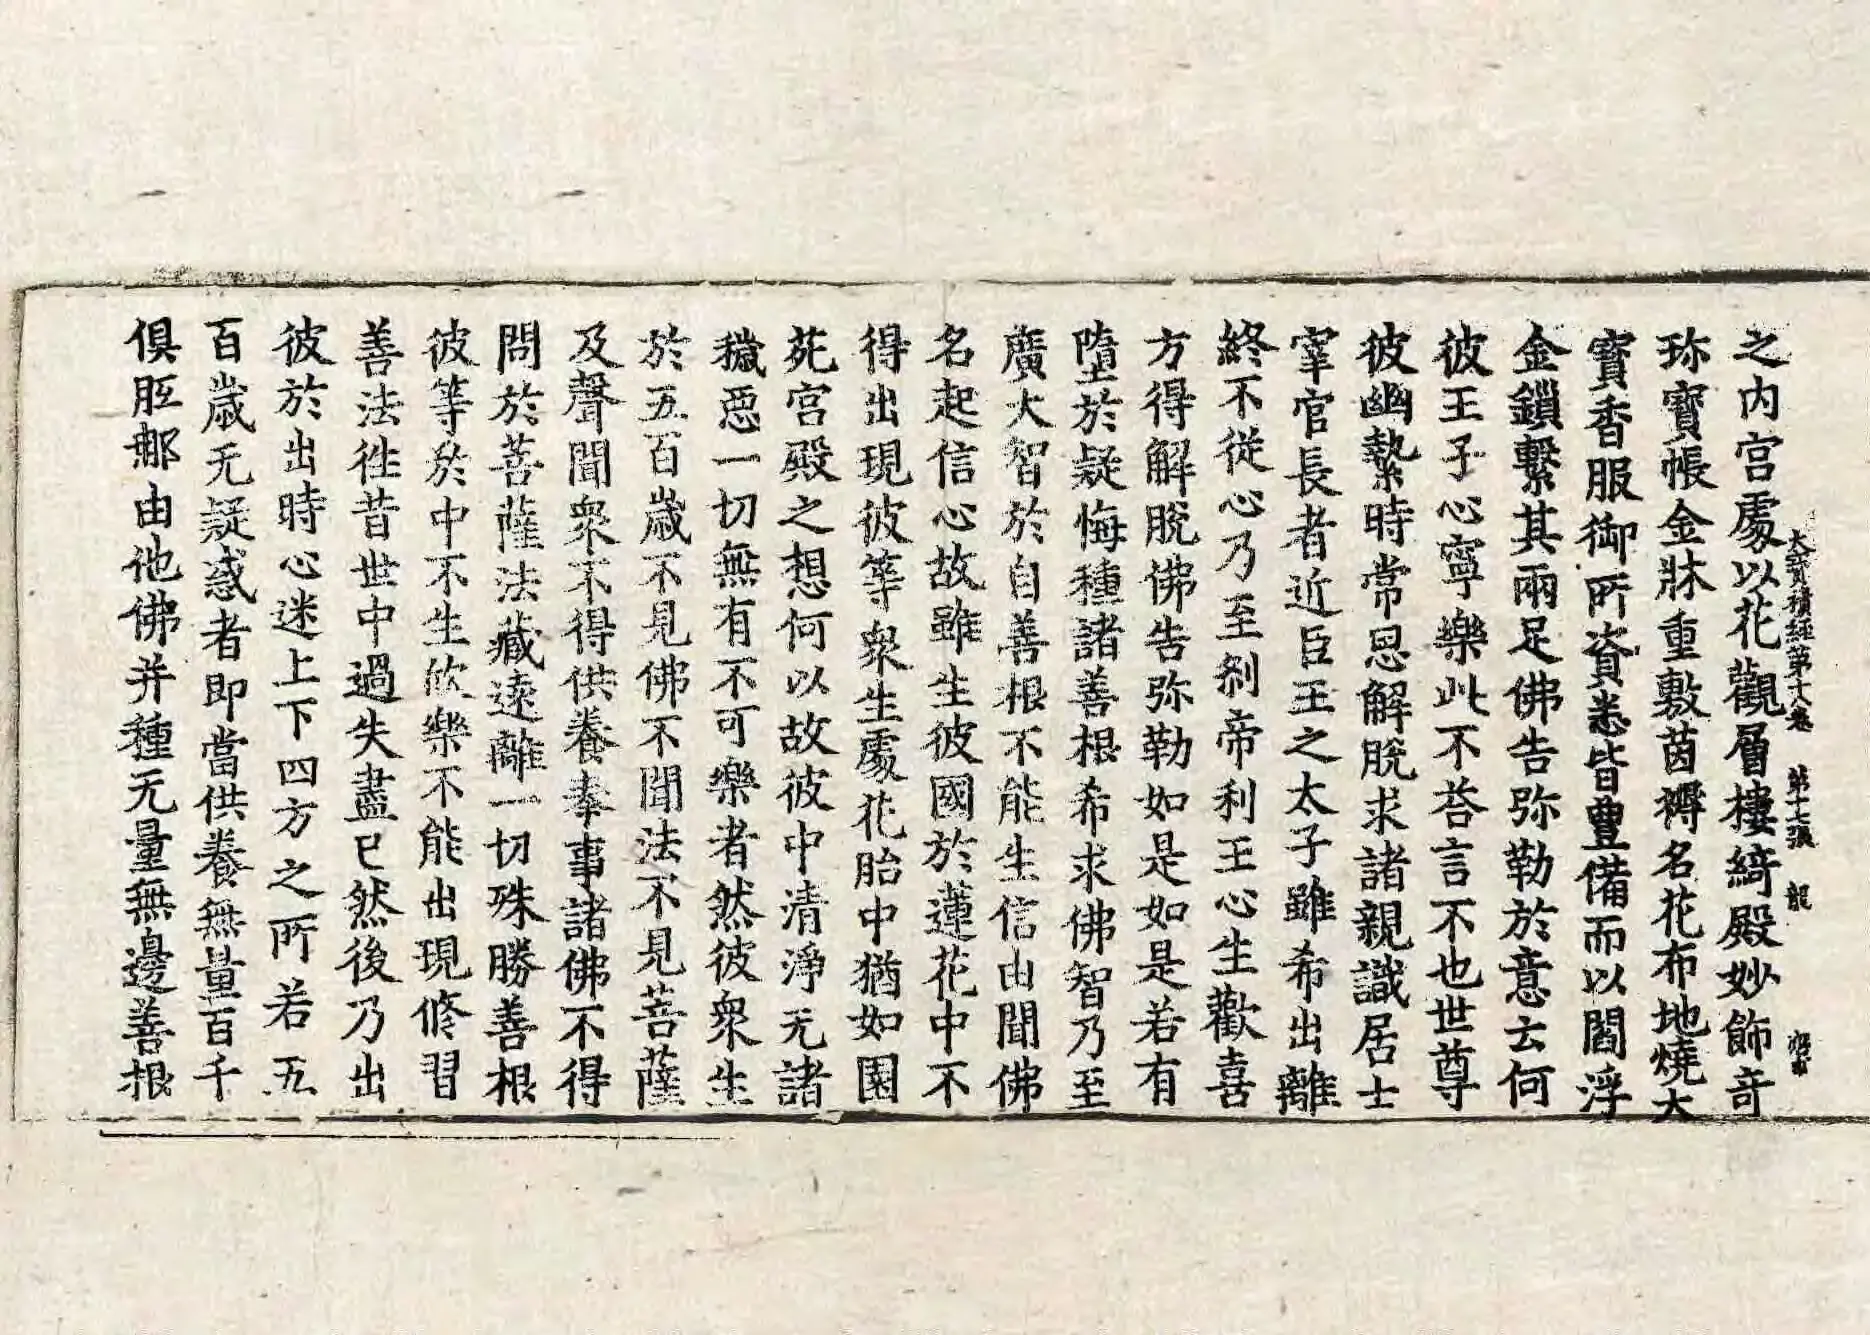 大寶積經第十八卷 第十七張 龍
之内宫處以花觀層樓綺殿妙飾竒
珎寳帳金牀重敷茵褥名花布地燒大
寳香服御所資悉皆豊備而以閻浮
金鎖繫其兩足佛告弥勒於意云何
彼王子心寧樂此不荅言不也世尊
彼幽縶時常思解脫求諸親識居士
宰官長者近臣王之太子雖希出離
終不從心乃至刹帝利王心生歡喜
方得解脫佛告弥勒如是如是若有
墮於疑悔種諸善根希求佛智乃至
廣大智於自善根不能生信由聞佛
名起信心故雖生彼國於蓮花中不
得出現彼等衆生處花胎中猶如園
苑宫殿之想何以故彼中清淨无諸
穢惡一切無有不可樂者然彼衆生
於五百歲不見佛不聞法不見菩薩
及聲聞衆不得供養奉事諸佛不得
問於菩薩法藏遠離一切殊勝善根
彼等於中不生欣樂不能出現修習
善法徃昔世中過失盡已然後乃出
彼於出時心迷上下四方之所若五
百歲无疑惑者即當供養無量百千
俱胝那由他佛并種无量無邊善根